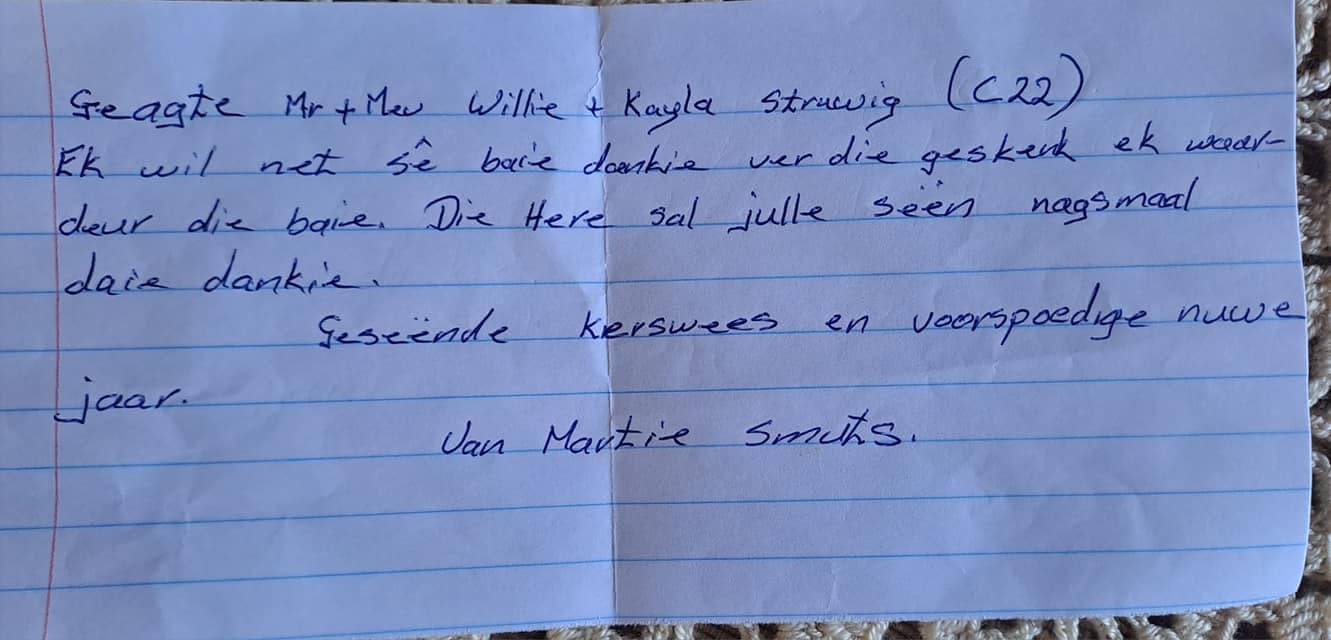 Geagte Mr + Mev Willie + Kayla Struwig (C22)
Ek wil net sê baie dankie ver die geskenk ek waar-
deur die baie. Die Here sal julle seën nagsmaal
daie dankie.
Geseënde kerswees en voorspoedige nuwe
jaar.
Van Martie Smuts.